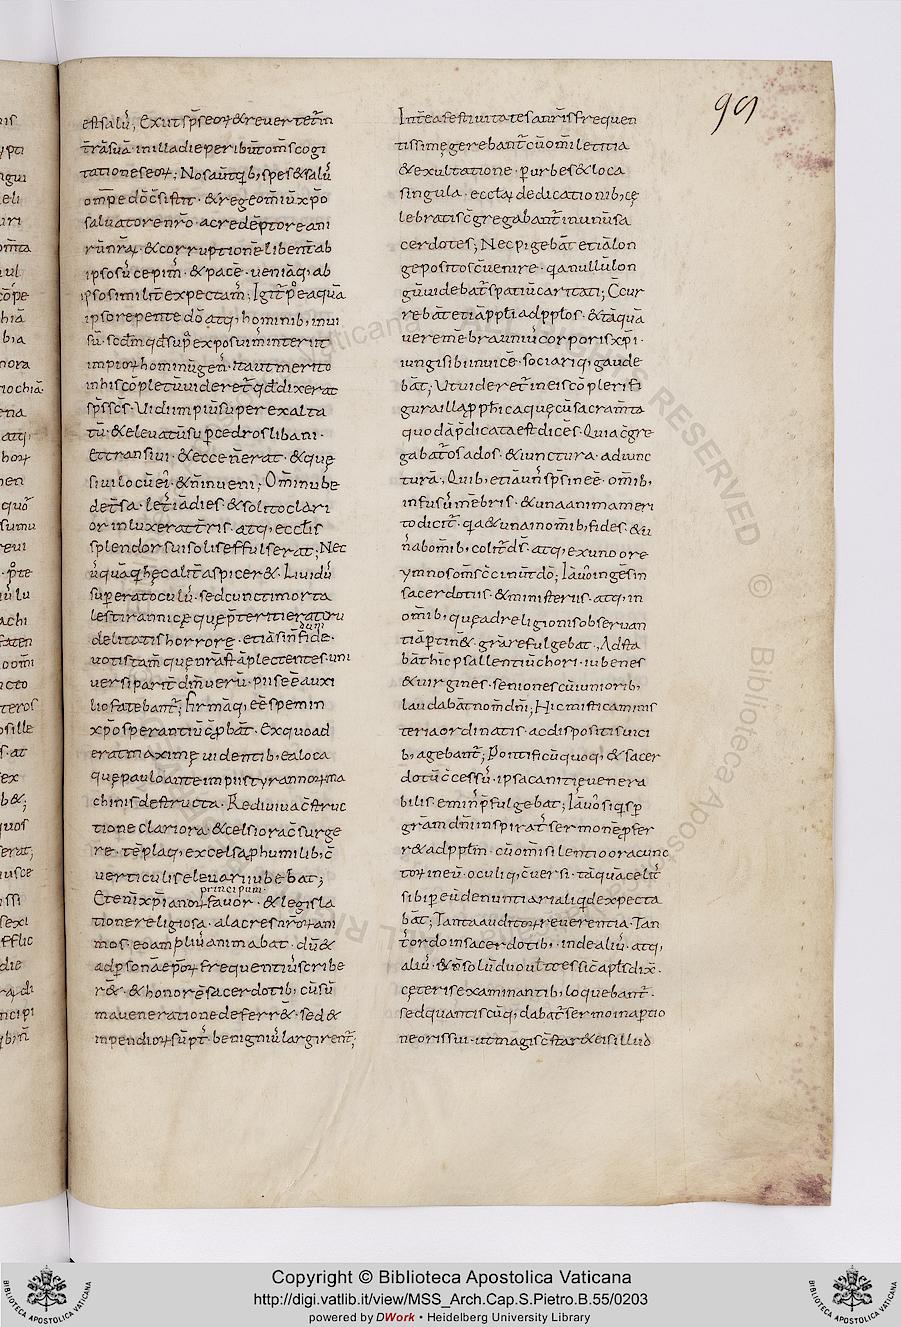 est salus, Exiit sp̄s eoꝝ & reuertet̄ in
t̄rā suā· in illa die peribūt om̄s cogi
tationes eoꝝ; Nos aut̄ qb; spes & salus
om̄pe dō c̄sistit· & rege om̄iū xp̄o
saluatore n̄ro· ac redēptore ani
& corruptionē libent̄ ab
& pacē· ueniāq; ab
expectam̄;
ipso repente dō atq; hominib; inui
exposuim̄ interiit
impioꝝ hominū gen̄· Ita ut merito
in his cōpletū uideret̄ qd̄ dixerat
sp̄s sc̄s· Uidi impiū superexalta
tū· & eleuatū sup̄ cedros libani·
Et transiui· & ecce n̄ erat· & quę
siui locū ei· & n̄ inueni; Om̄i nube
det̄sa· lęti iā dies & solito clari
or inluxerat t̄ris· atq; eccl̄is
splendor sui solis effulserat; Nec
aspicer&· Liuidus
sup̄eratoculus· sed cuncti morta
les tirannicę quę p̄terierat cru
delitatis horrorę· etiā si n̄ fide·
uotis tam̄ quę n̄ra st̄ āplectentes· uni
uersi parit̄ dm̄ uerū· pii se eē auxi
lio fatebant̄; Firmāq; eē spem in
xp̄o sperantiū c̄p̄bāt· Ex quo ad
erat maximę uidentib; ea loca
quę paulo ante impiis tyrannoꝝ ma
chinis destructa· Rediuiua c̄struc
tione clariora & celsiora c̄surge
re· tēplaq; excelsa p̄ humilib; c̄
uerticulis eleuari iubebat;
principum·
Eten̄ xp̄ianoꝝ fauor· & legisla
tio n̄re religiosa· alacres n̄roꝝ ani
mos· eo amplius animabat· dū &
ad p̄sonā ep̄oꝝ frequentius scribe
r&· & honorē sacerdotib; cū sū
ma ueneratione deferr&· sed &
inpendioꝝ sūpt̄ benignius largirent̄;
99
Int̄ea festiuitates a n̄ris frequen
tissimę gerebant̄ cū om̄i letitia
& exultatione· p̄ urbes & loca
singula· eccl̄aꝝ dedicationib; cę
lebratis c̄gregabant̄ in unū sa
cerdotes; Nec pigebāt etiā lon
ge positos c̄uenire· q̄a nullū lon
gū uidebat̄ spatiū caritati; C̄cur
rebāt etiā pp̄li ad pp̄los· & tāquā
uere mēbra unius corporis xp̄i·
iungi sibi inuicē· sociariq; gaude
bāt; Ut uideret̄ in eis cōpleri fi
gura illa p̄ph̄ica quę cū sacram̄ta
quodā p̄dicata est dicēs· Quia c̄gre
gabat̄ os ad os· & iunctura· ad iunc
turā; Quib; etiā un̄ sp̄s ineē· om̄ib;
infusus mēbris· & una anima meri
to dicit̄· q̄a & una in om̄ib; fides· & u
n̄ ab om̄ib; colit̄ ds̄· atq; ex uno ore
ymnos om̄s c̄cinūt dō; Iā uō ingēs in
sacerdotiis· & ministeriis· atq; in
om̄ib; quę ad religionis obseruan
tiā p̄tin&· gr̄a refulgebat; Adsta
bāt hic psallentiū chori· iubenes
& uirgines· seniones cū iuniorib;
laudabāt nom̄ dn̄i; Hic mistica minis
teria ordinatis· ac dispositis uici
b; agebant̄; Pontificū quoq; & sacer
dotū c̄cessus· ipsa canitie uenera
bilis· eminēs p̄fulgebat; Iā uō si q̄s p̄
gr̄am dn̄i inspirat̄ sermonē p̄fer
r& ad pp̄lm̄· cū om̄i silentio ora cunc
toꝝ in eū· oculiq; c̄uersi· tāquā celit̄
sibi p̄ eū denuntiari aliqd̄ expecta
bāt; Tanta auditoꝝ reuerentia· Tan
t̄ ordo in sacerdotib;· inde alius· atq;
alius· & n̄ solū duo ul̄ tres sic̄ apl̄s dix̄·
cęteris examinantib; loquebant̄·
sed quantiscūq; dabat̄ sermo in aptio
ne oris sui· ut magis c̄star& eis illud
Copyright © Biblioteca Apostolica Vaticana
http://digi.vatlib.it/view/MSS_Arch.Cap.S.Pietro.B.55/0203
powered by DWork • Heidelberg University Library